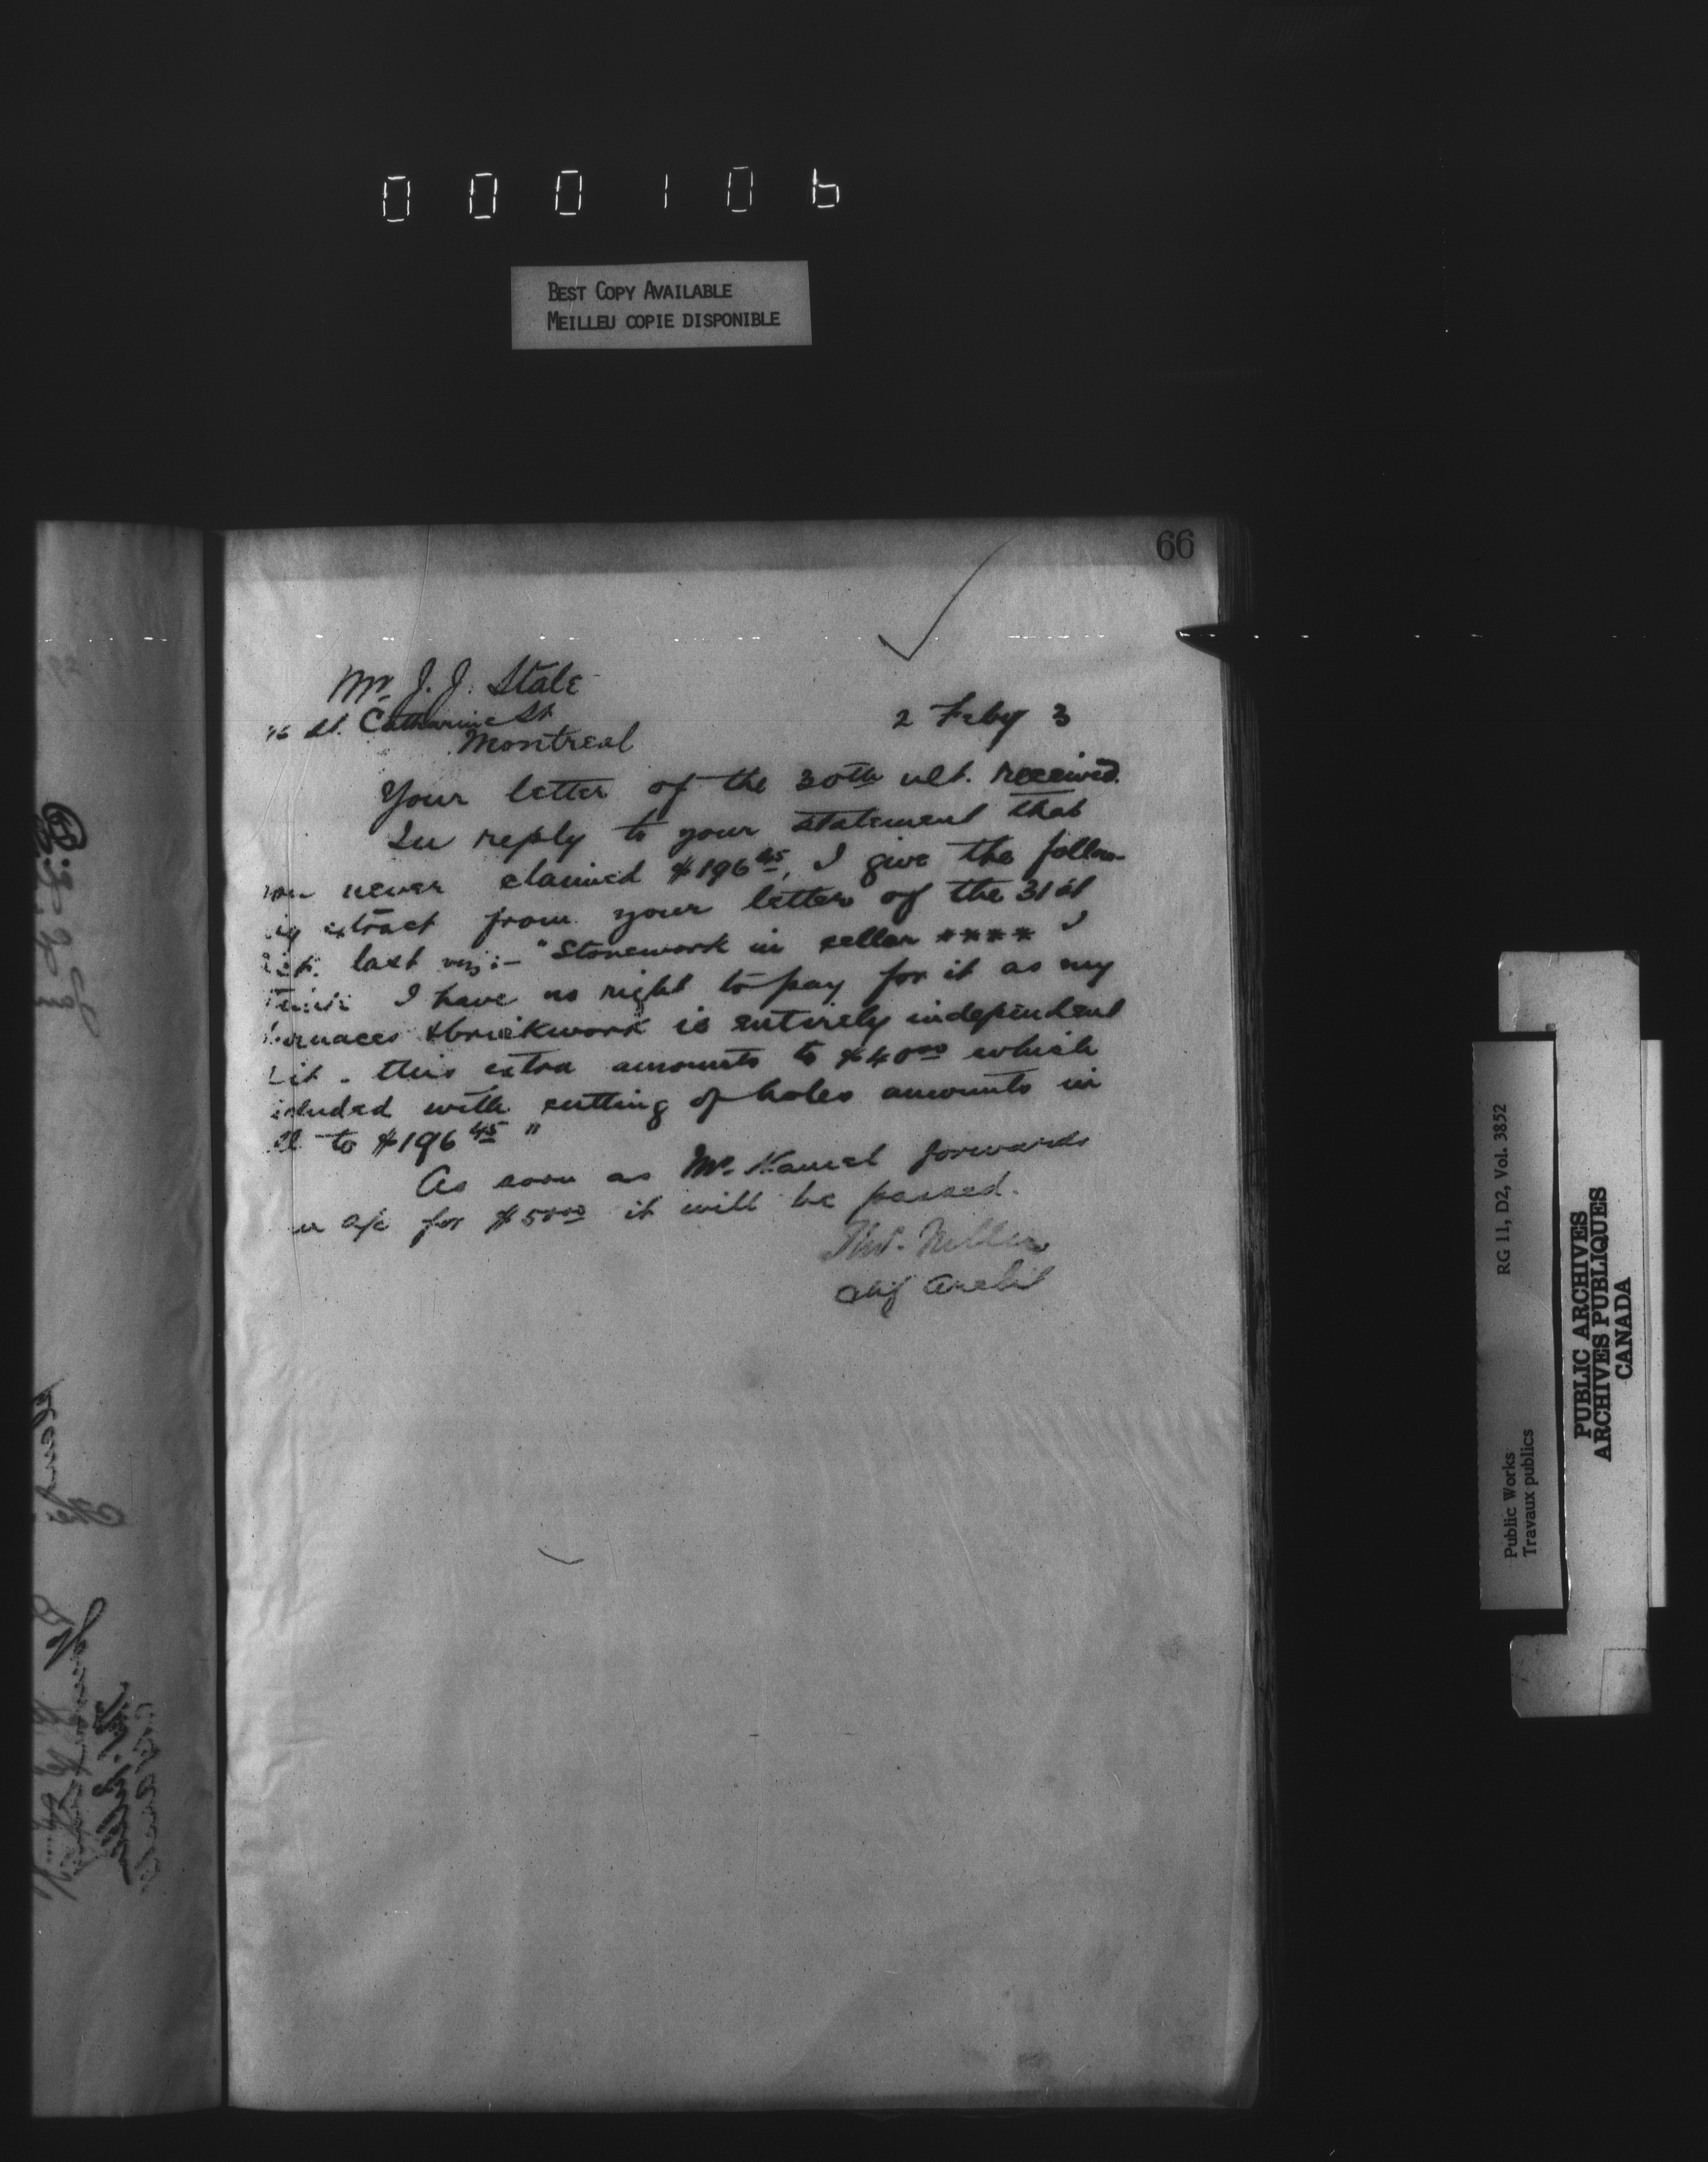 000106
BEST COPY AVAILABLE
MEILLEU COPIE DISPONIBLE
66
Mr. J. J. State
St. Catharine St
Montreal
2 Feby 3
Your letter of the 30th ult. received.
In reply to your statement that
you never claimed $196 45, I give the follow-
ing extract from your letter of the 31st
last viz:- "Stonework in cellar **** I
think I have no right to pay for it as my
furnaces & brickwork is entirely independent
it - this extra amounts to $40 00 which
included with cutting of holes amounts in
all to $196 45 "
As soon as Mr. forwards
a/c for $50 00 it will be passed.
Chf Archt
RG 11, D2, Vol. 3852
Public Works
Travaux publics
PUBLIC ARCHIVES
ARCHIVES PUBLIQUES
CANADA